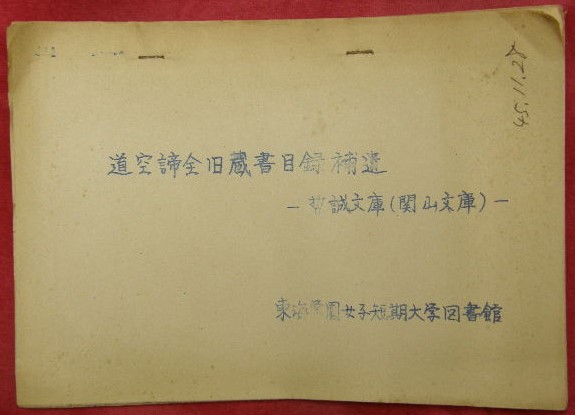 道空諦全旧蔵書目録補遺
誠文庫(関山文庫)ー
東海学園女子短期大学図書館